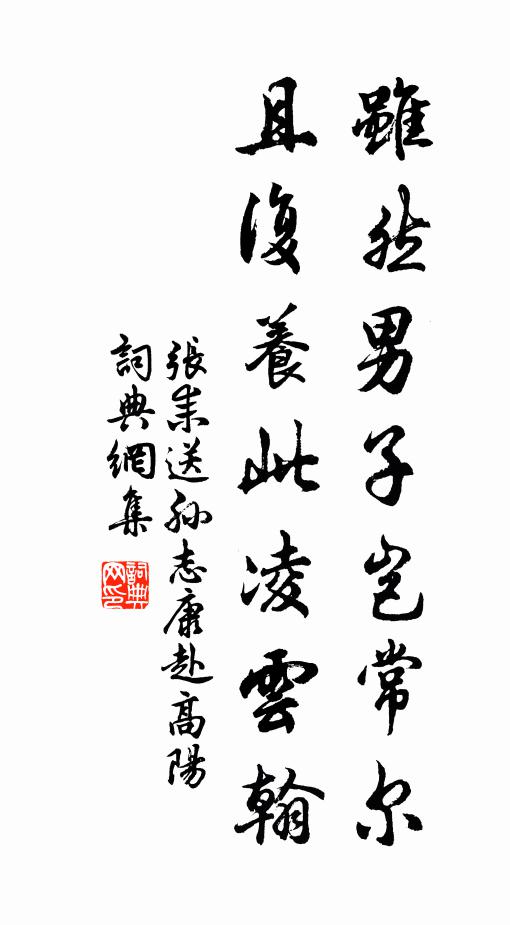 雖然男子豈常尔
且復養此凌雲翰
張耒送孙志康赴高陽
詞典網集
詞典网印